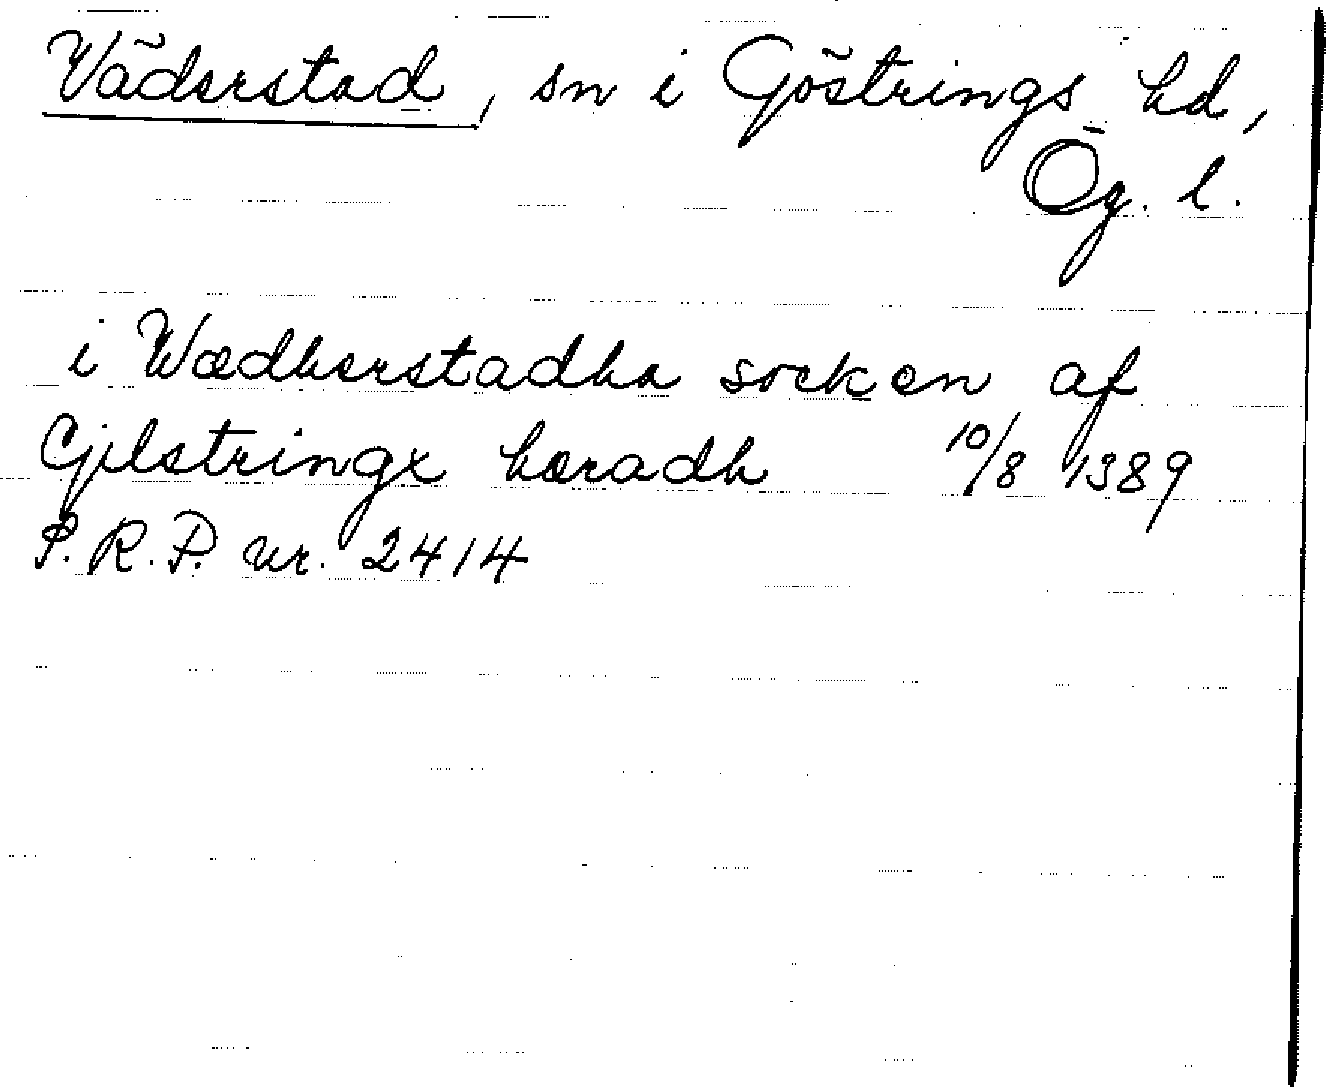 Väderstad, sn i Göstrings hd,
Ög. l.
i Wædherstadha socken af
Gilstringx hæradh 10/8 1389
S. R. P. nr. 2414